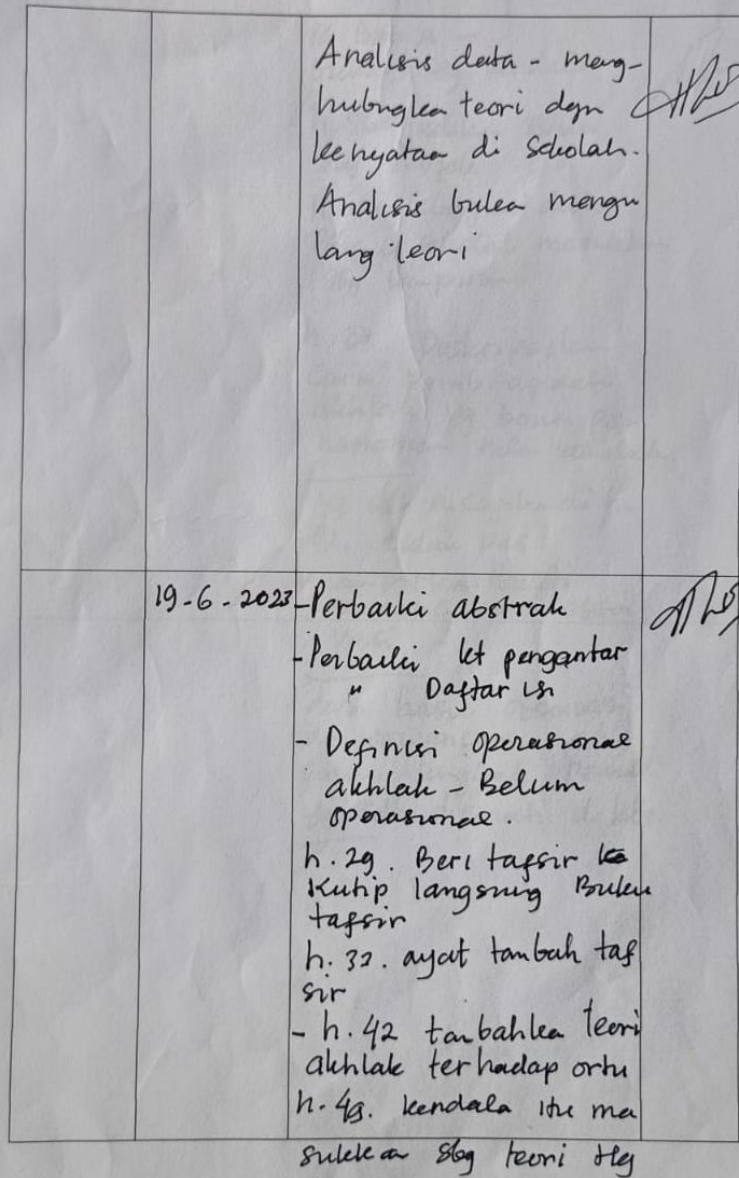 Analisis data - meng-
hubungkan teori dgn
kenyataan di sekolah.
Analisis bukan mengu
lang teori
19-6-2023 - Perbaiki abstrak
- Perbaiki kt pengantar
" Daftar isi
- Definisi operasional
akhlak - Belum
operasional.
h. 29. Beri tafsir
Kutip langsung Buku
tafsir
h. 32. ayat tambah taf
sir
- h. 42 tambahkan teori
akhlak terhadap ortu
h. 49. kendala itu ma
sukkan sbg teori ttg